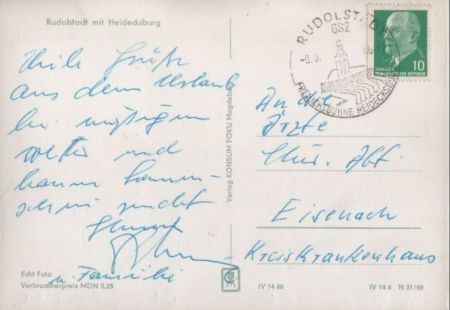 Rudolstadt mit Heidecksburg
Viele Grüße
aus dem Urlaub
bei
Wetter und
kaum
sendet
u. Familie
Echt Foto
Verbraucherpreis MDN 0,25
Verlag KONSUM FOKU Magdeburg
RUDOLSTADT
GS2
-8.9.
FREILICHTBÜHNE HEIDECKSBURG
DEUTSCHE
DEMOKRATISCHE REPUBLIK
10
An die
Ärzte
Chir. Abt.
Eisenach
Kreiskrankenhaus
IV 14 66
IV 14 6 N 31/66